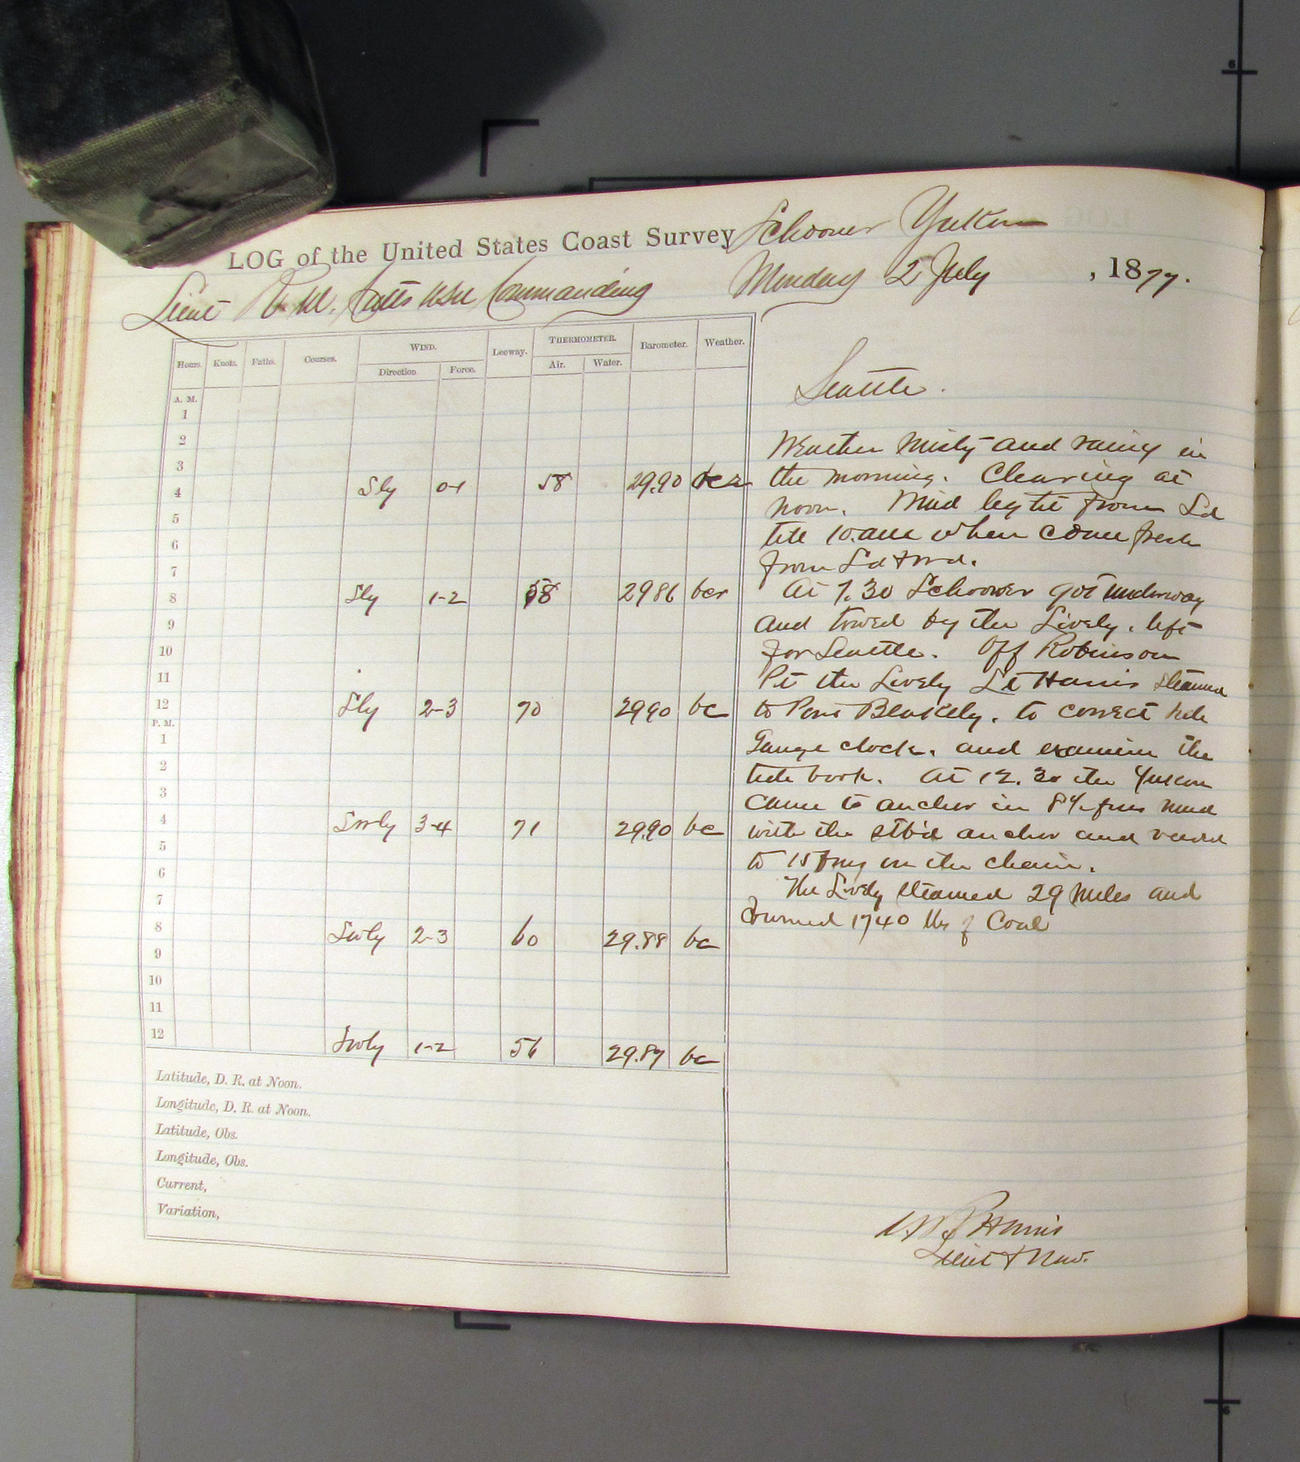 LOG of the United States Coast Survey Schooner Yukon
Lieut Comdg Monday 2 July, 1877.
Hours. Knots. Faths. Courses. WIND. Leeway. THERMOMETER. Barometer. Weather.
Direction. Force. Air. Water.
A. M.
1
2
3
4 Sly 0-1 58 29.90
5
6
7
8 Sly 1-2 58 29 86 bcr
9
10
11
12 Sly 2-3 70 29.90 bc
P. M.
1
2
3
4 3-4 71 29.90 bc
5
6
7
8 Swly 2-3 60 29.88 bc
9
10
11
12 Swly 1-2 56 29.87 bc
Latitude, D. R. at Noon.
Longitude, D. R. at Noon.
Latitude, Obs.
Longitude, Obs.
Current,
Variation,
Seattle.
Weather Misty and rainy in
the morning. Clearing at
noon. Wind light from Sd
till 10. am when came fresh
from Sd & Wd.
At 7.30 Schooner got underway
and towed by the Lively. left
for Seattle. Off Robinson
Pt the Lively Lt Harris steamed
to Port Blakely. to correct tide
Gauge clock. and examine the
tide book. At 12.30 the Yukon
came to anchor in 8½ fms mud
with the stb'd anchor and veered
to 15 fms on the chain.
The Lively steamed 29 miles and
burned 1740 lbs of Coal
Harris
Lieut & Nav.